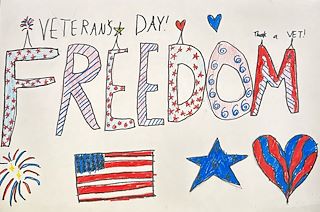 VETERANS DAY!
Thank a VET!
FREEDOM